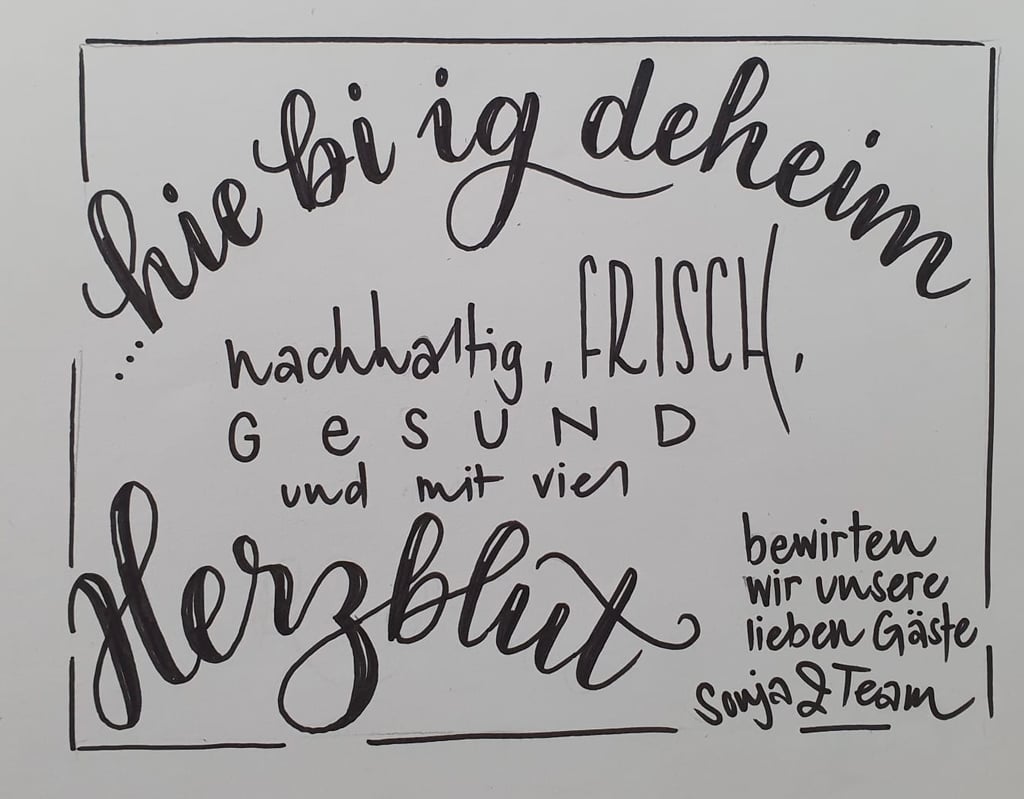 hie bi ig deheim
...
nachhaltig, FRISCH,
GeSUND
und mit viel
Herzblut
bewirten
wir unsere
lieben Gäste
Sonja & Team